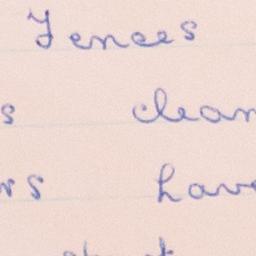 Fences
s clean
rs have